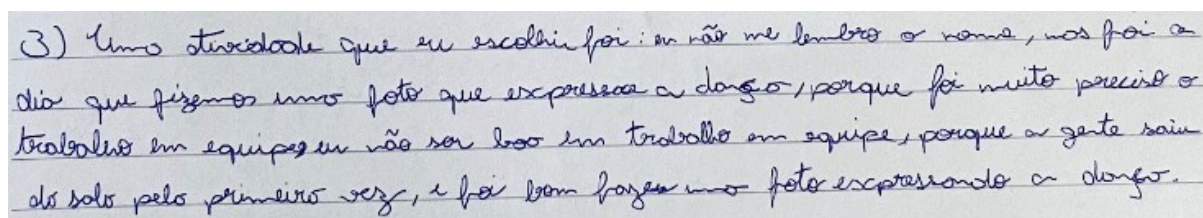 3) Uma atividade que eu escolhi foi: eu não me lembro o nome, mas foi o
dia que fizemos uma foto que expressa a dança, porque foi muito preciso o
trabalho em equipe, eu não sou boa em trabalho em equipe, porque a gente saiu
da sala pela primeira vez, e foi bom fazer uma foto expressando a dança.